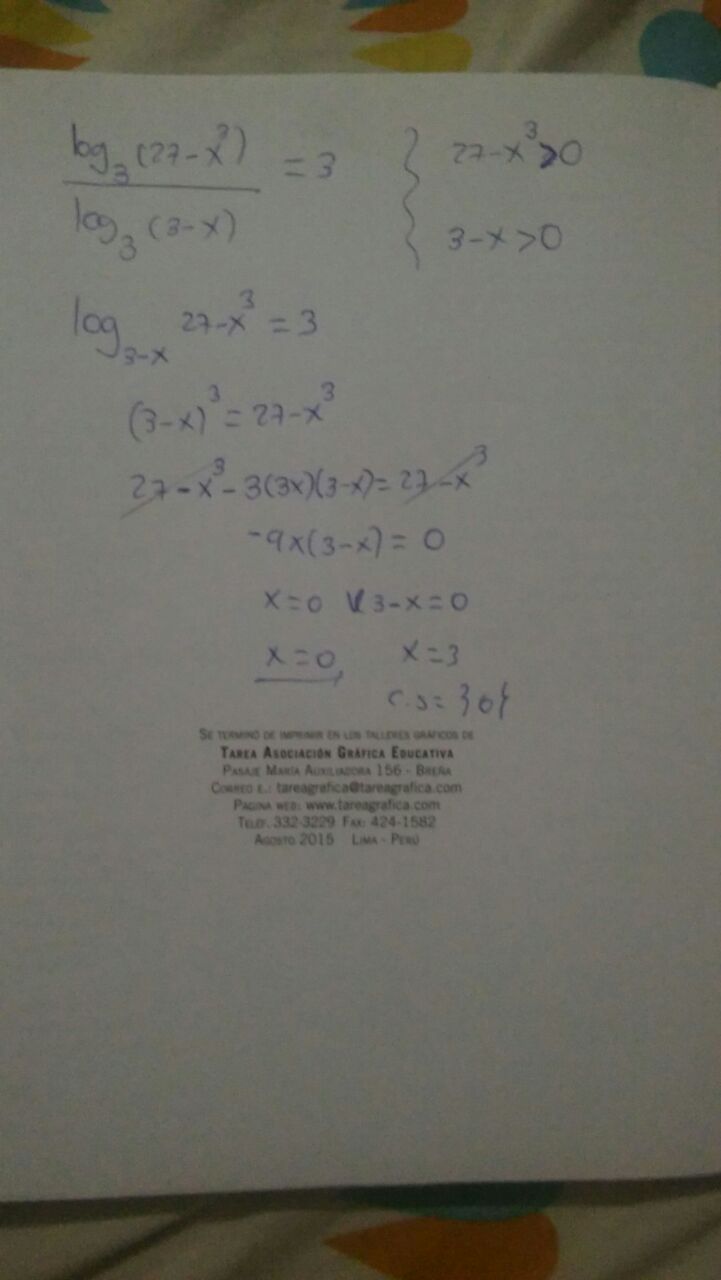 log₃(27-x³) / log₃(3-x) = 3 { 27-x³>0
3-x>0
log₃₋ₓ 27-x³ = 3
(3-x)³ = 27-x³
27-x³-3(3x)(3-x)=27-x³
-9x(3-x)=0
x=0 V 3-x=0
x=0, x=3
C.S={0}
SE TERMINÓ DE IMPRIMIR EN LOS TALLERES GRÁFICOS DE
TAREA ASOCIACIÓN GRÁFICA EDUCATIVA
PASAJE MARÍA AUXILIADORA 156 - BREÑA
CORREO E.: tareagrafica@tareagrafica.com
PÁGINA WEB: www.tareagrafica.com
TELÉF. 332-3229 FAX: 424-1582
AGOSTO 2015 LIMA - PERÚ